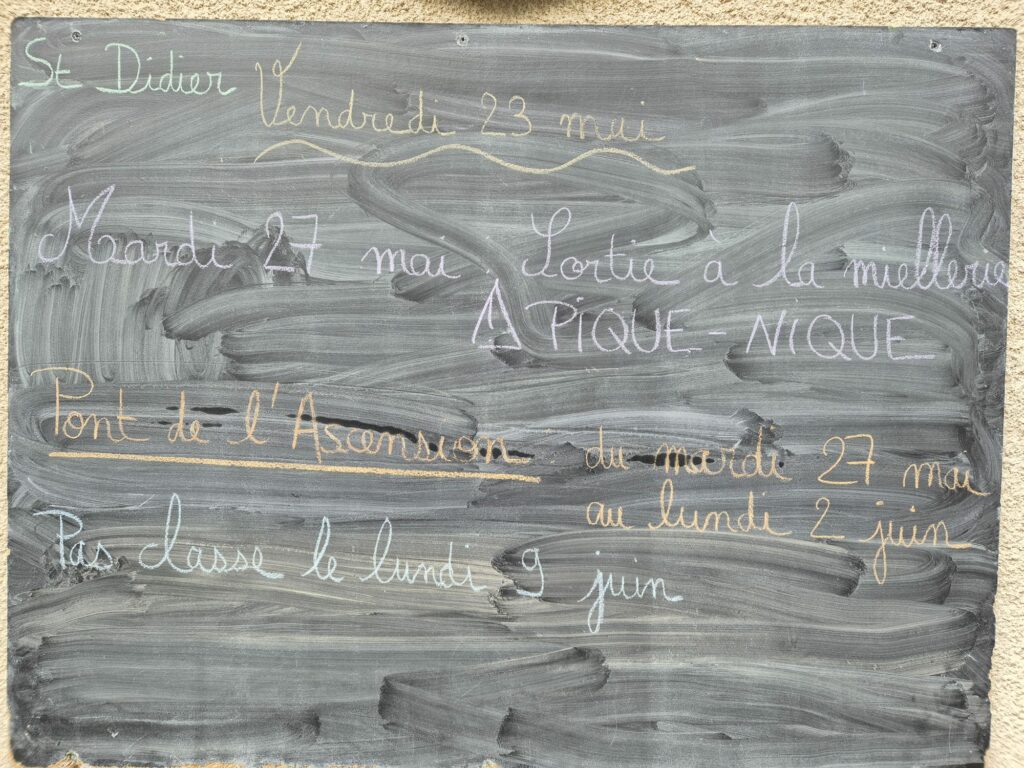 St Didier
Vendredi 23 mai
Mardi 27 mai : Sortie à la miellerie
⚠ PIQUE-NIQUE
Pont de l'Ascension : du mardi 27 mai
au lundi 2 juin
Pas classe le lundi 9 juin